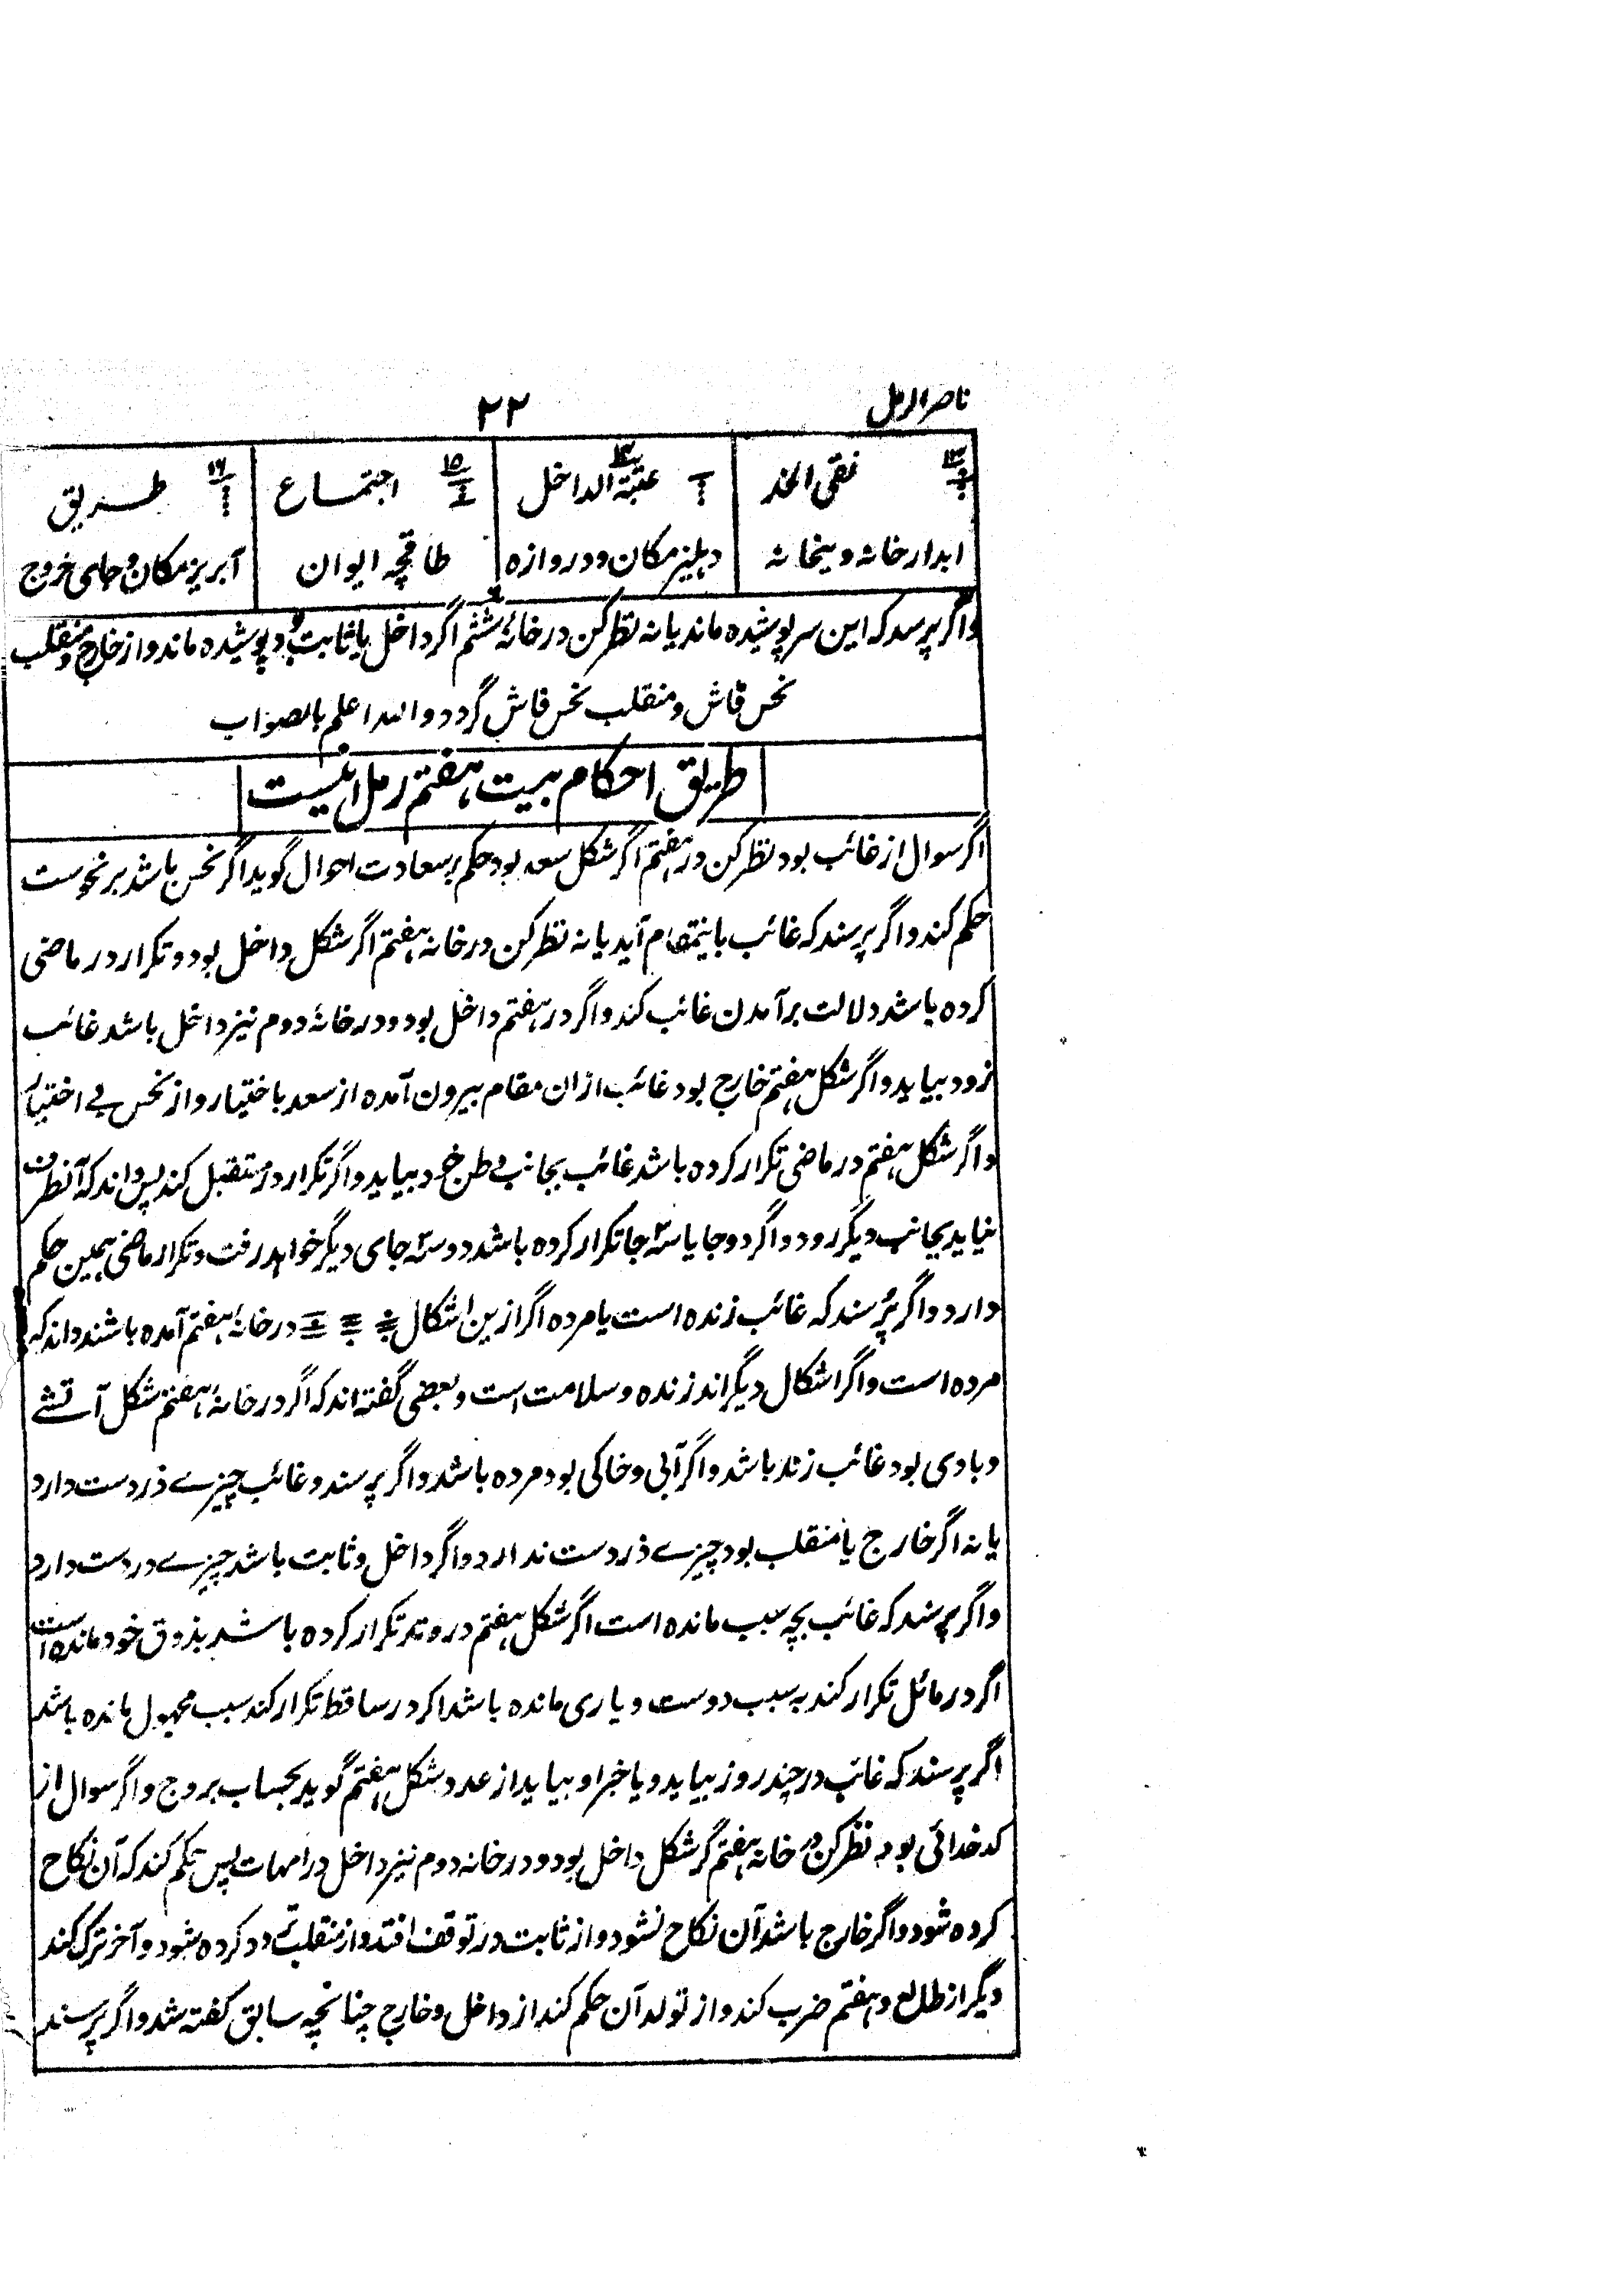 ناصر الرمل
۲۲
۱۳ نقی الخد
۱۴ عتبة الداخل
۱۵ اجتماع
۱۶ طریق
ابدارخانه و یخانه
دہلیز مکان و دروازه
طاقچه ایوان
آبریز مکان و جای خروج
و اگر پرسد که این سر پوشیده ماند یا نه نظر کن در خانۂ ششم اگر داخل یا ثابت بود پوشیده ماند و از خارج و منقلب
نحس فاش و منقلب نحس فاش گردد والله اعلم بالصواب
طریق احکام بیت ہفتم رمل اینست
اگر سوال از غائب بود نظر کن در ہفتم اگر شکل سعد بود حکم بر سعادت احوال گوید اگر نحس باشد بر نحوست
حکم کند و اگر پرسند که غائب باینمقام آید یا نه نظر کن در خانه ہفتم اگر شکل داخل بود و تکرار در ماضی
کرده باشد دلالت بر آمدن غائب کند و اگر در ہفتم داخل بود و در خانۂ دوم نیز داخل باشد غائب
زود بیاید و اگر شکل ہفتم خارج بود غائب ازان مقام بیرون آمده از سعد باختیار و از نحس بے اختیار
و اگر شکل ہفتم در ماضی تکرار کرده باشد غائب بجانب وطن خود بیاید و اگر تکرار در مستقبل کند پس داند که آنطرف
نیاید بجانب دیگر رود و اگر دو جا یا سه جا تکرار کرده باشد دو سه جای دیگر خواہد رفت و تکرار ماضی ہمین حکم
دارد و اگر پرسند که غائب زنده است یا مرده اگر ازین اشکال در خانۂ ہفتم آمده باشند داند که
مرده است و اگر اشکال دیگر اند زنده و سلامت است و بعضی گفته اند که اگر در خانۂ ہفتم شکل آتشے
و بادی بود غائب زند باشد و اگر آبی و خاکی بود مرده باشد و اگر پرسند و غائب چیزے در دست دارد
یا نه اگر خارج یا منقلب بود چیزے در دست ندارد و اگر داخل و ثابت باشد چیزے در دست دارد
و اگر پرسند که غائب بچه سبب مانده است اگر شکل ہفتم در وتد تکرار کرده باشد بذوق خود مانده است
اگر در مائل تکرار کند به سبب دوست و یاری مانده باشد اکر در ساقط تکرار کند سبب مجہول مانده باشد
اگر پرسند که غائب در چند روز بیاید و یا خبر او بیاید از عدد شکل ہفتم گوید بحساب بروج و اگر سوال از
کدخدائی بود نظر کن در خانه ہفتم گر شکل داخل بود و در خانه دوم نیز داخل در امہات پس حکم کند که آن نکاح
کرده شود و اگر خارج باشد آن نکاح نشود و از ثابت در توقف افتد و از منقلب تردد کرده شود و آخر ترک کند
دیگر از طالع و ہفتم ضرب کند و از تولد آن حکم کند از داخل و خارج چنانچه سابق گفته شد و اگر پرسند